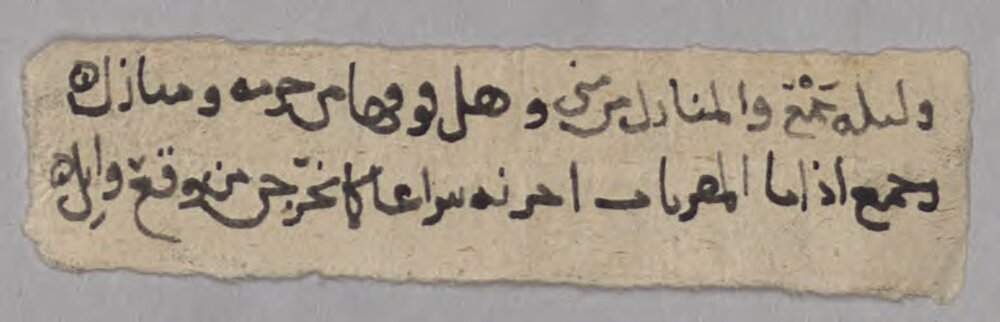 وليله جمع والمنازل من منى وهل فوقها من حرمه ومنازل
وجمع اذا ما المقربات اجزنه سراعا كما يخرجن من وقع وابل